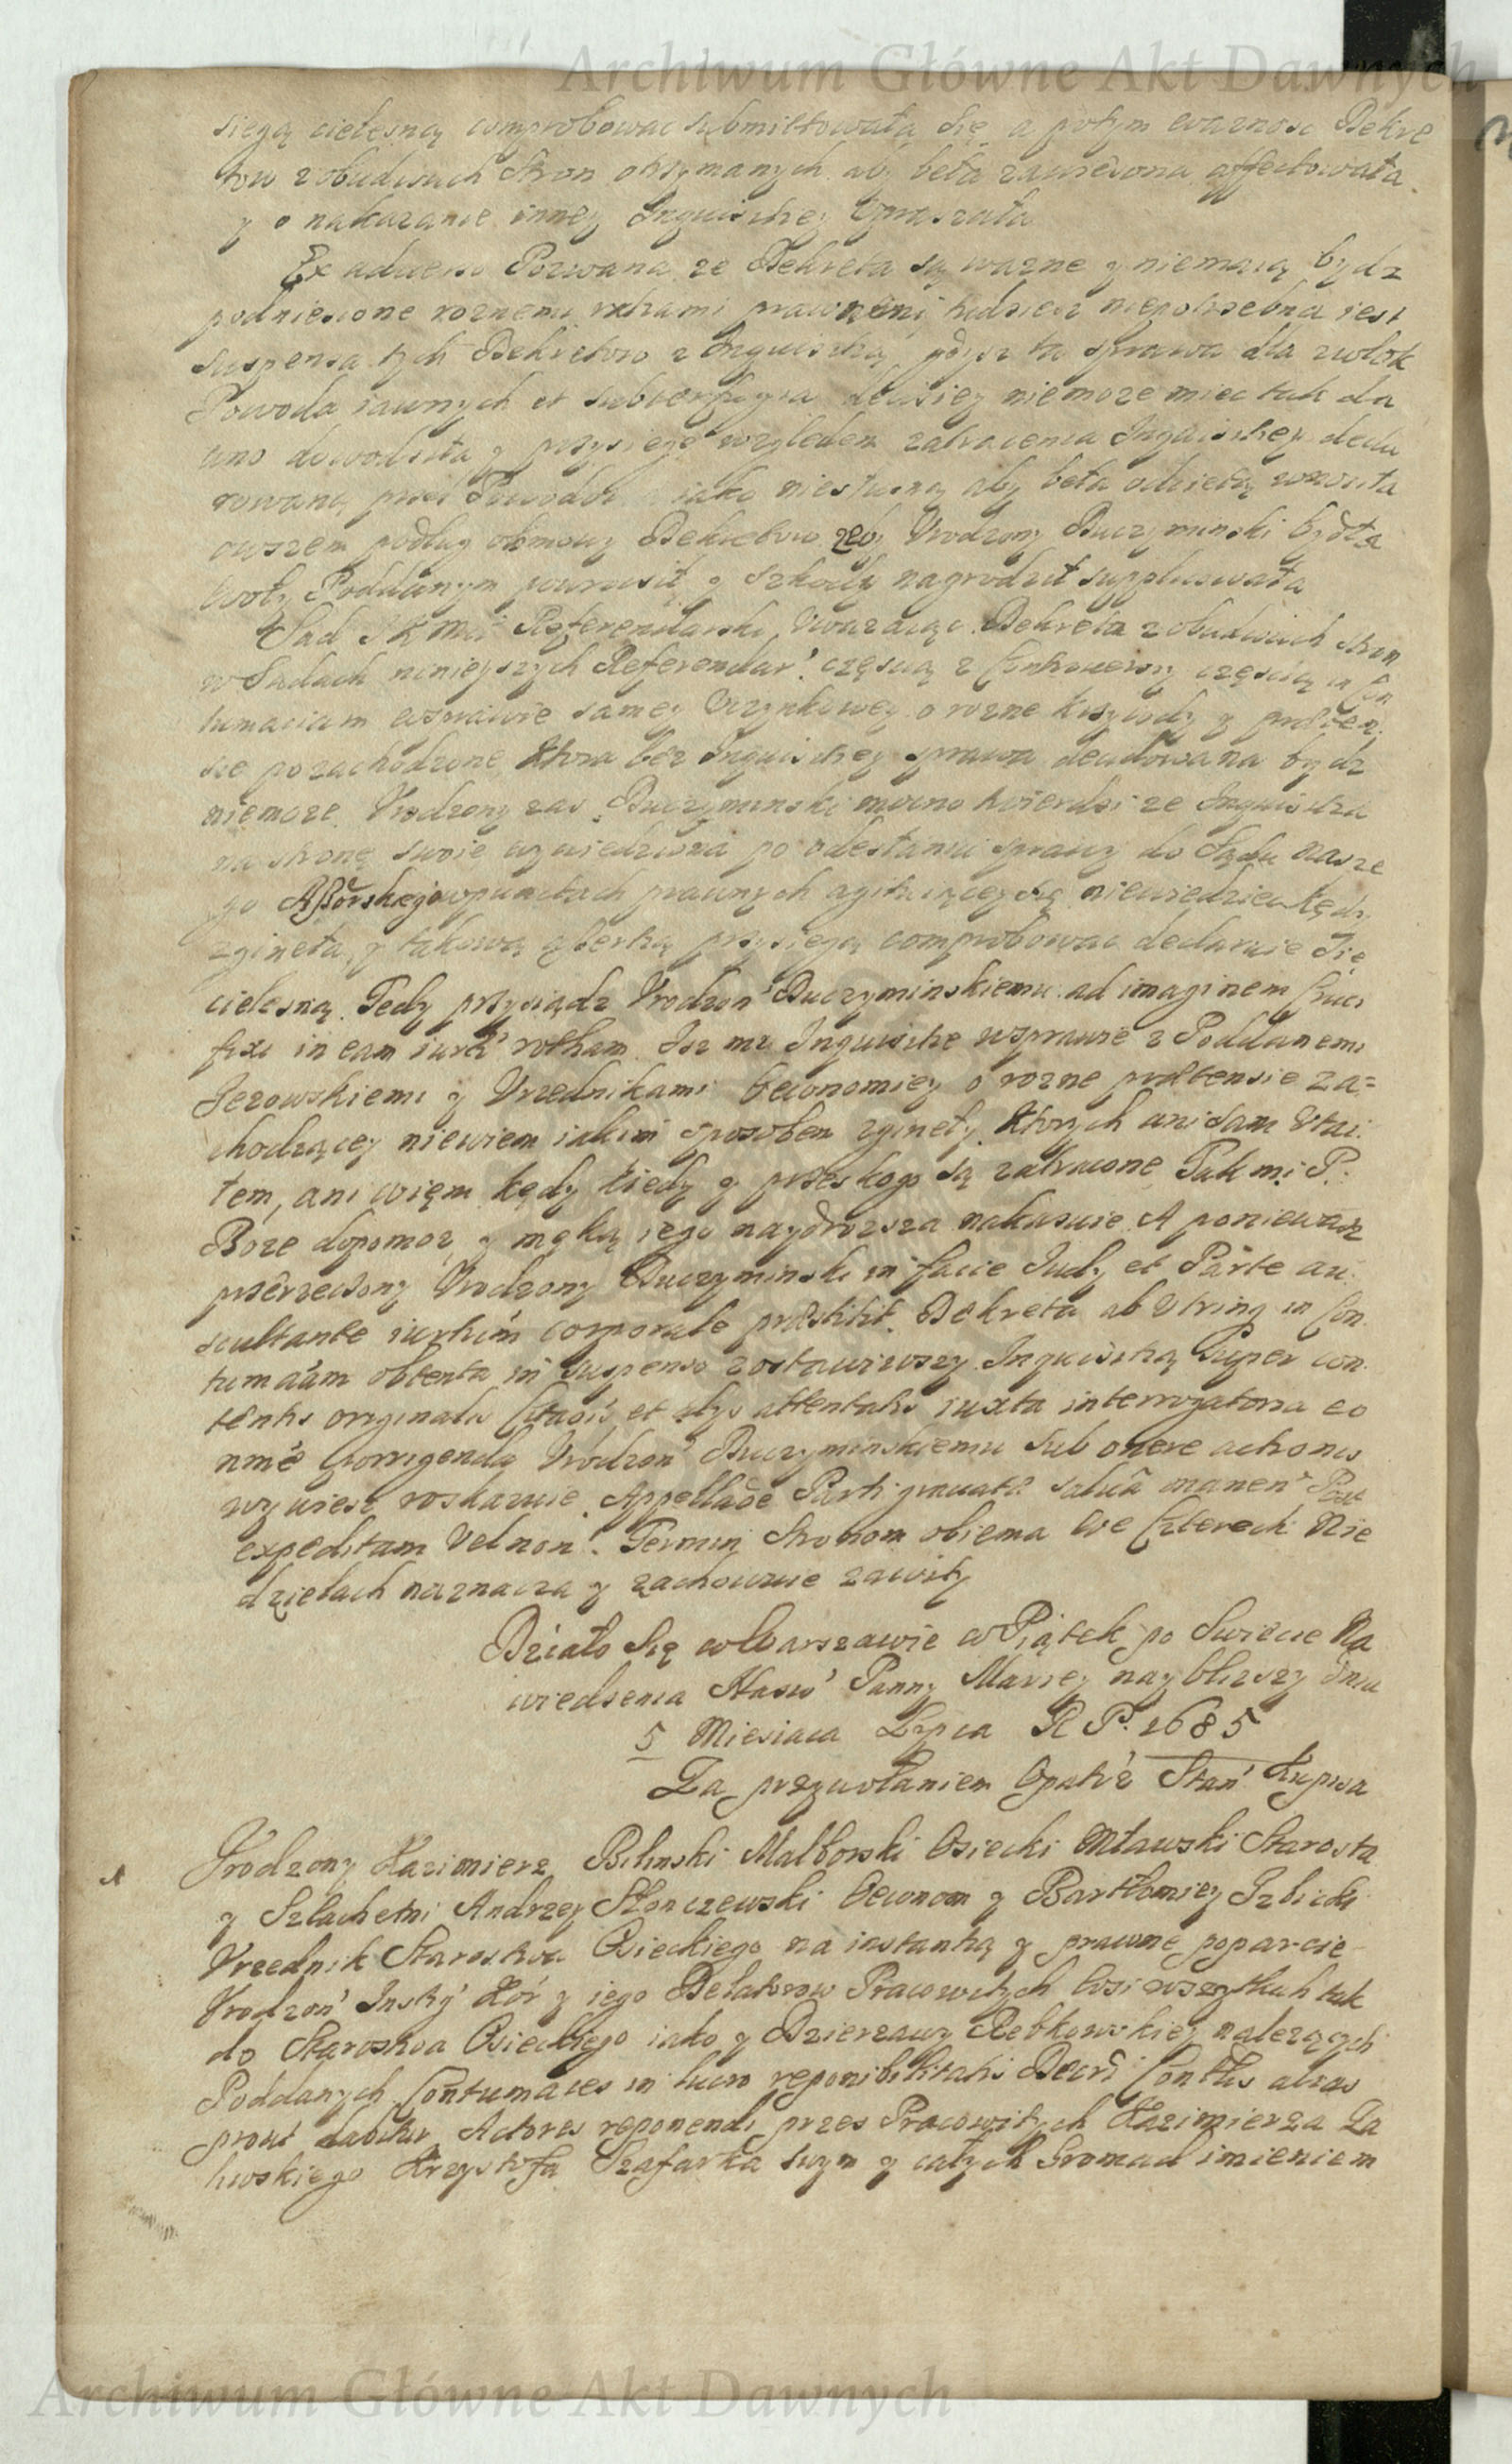 Archiwum Główne Akt Dawnych
sięgą cielesną comprobować submittowała się, a potym ważnosc Dekre
tow z obudwuch Stron otrzymanych, aby beła zawieszona affectowała
y o nakazanie inney Inquisitiey upraszała
Ex adverso Pozwana ze Dekreta są wazne y niemaią bydz
podniesione roznemi racyami prawnemi tudziesz niepotrzebna iest
suspensa tych Dekretow z Inquisitią gdysz ta sprawa dla zwłok
Powoda iawnych et subterfugia decisiey niemoze miec tak da
wno dowodziła y przysięgę względem zatracenia Inquisitiey decla
rowaną przez Powoda iako niesłuszną aby beła odcięta wnosiła
owszem podług obmowy Dekretow zeby Urodzony Buczyminski bydła
woły Poddanym powrocił y szkody nagrodził supplicowała
Sąd JK Mci Referendarski, Uwazaiąc Dekreta z obudwuch stron
w Sądach ninieyszych Referendar: częscią z Controwersy częscią in Con
tumaciam w sprawie samey Uczynkowey o rozne krzywdy y praeten
sie pozachodzone, ktora bez Inquisitiey sprawa decidowana bydz
niemoze. Urodzony zas Buczyminski mocno twierdzi ze Inquisitia
na stronę swoie wywiedziona po odesłaniu sprawy do Sądu Nasze
go Assorskiego w punctach prawnych agituiącey się niewiedziec kędy
zgineła, y takową assertią przysięgą comprobowac declaruie Się
cielesną. Tedy przysiądz Urodzon' Buczyminskiemu ad imaginem Cruci
fixi in eam iura' rotham. Isz mi Inquisitie w sprawie z Poddanemi
Jezowskiemi y Urzednikami Oeconomiey o rozne praetensie za=
chodzącey niewiem iakim sposobem zgineły, ktorych ani sam Utai
łem, ani wiem kędy kiedy y przes kogo są zatracone, Tak mi P.
Boze dopomoz y męka iego naydrozsza nakazuie. A poniewasz
przerzeczony Urodzony Buczyminski in facie Judy et Parte au
scultante iurtum corporale praestitit. Dekreta ab utrinq in Con
tumaciam obtenta in suspenso zostawiwszy Inquisitią Super con
tentis originalis Citaois et alys attentatis iuxta interrogatoria eo
nme porrigenda Urodzon' Buczyminskiemu Sub onere actionis
wywiesz roskazuie. Appellaoe Parti gravata salva manen' Post
expeditam Vel non. Termin Stronom obiema we Czterech Nie
dzielach naznacza y zachowuie zawity
Działo Się w Warszawie w Piątek po Swiecie Na
wiedzenia Nasw' Panny Mariey nayblizszy Dnia
5 Miesiaca Lipca R P. 1685
Za przywołaniem Opatr'z Stan' Kupisa
Urodzony Kazimierz Bilinski Malborski Osiecki Mławski Starosta
y Szlachetni Andrzey Słonczewski Oeconom y Bartłomiey Izbicki
Urzednik Starostwa Osieckiego na instantią y prawne poparcie
Urodzon' Insty' Kor y iego Delatorow Pracowitych Wsi wszytkich tak
do Starostwa Osieckiego iako y Dzierzawy Rebkowskiey nalezących
Poddanych Contumaces in lucro reponibilitatis Decrti Conttis alias
prout dabitur Actores reponendi przes Pracowitych Kazimierza Za
Krzysztofa Szafarka swym y całych Gromad imieniem
Archiwum Główne Akt Dawnych